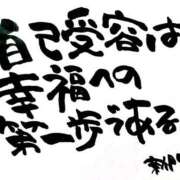 自己受容は
幸福への
第一歩である